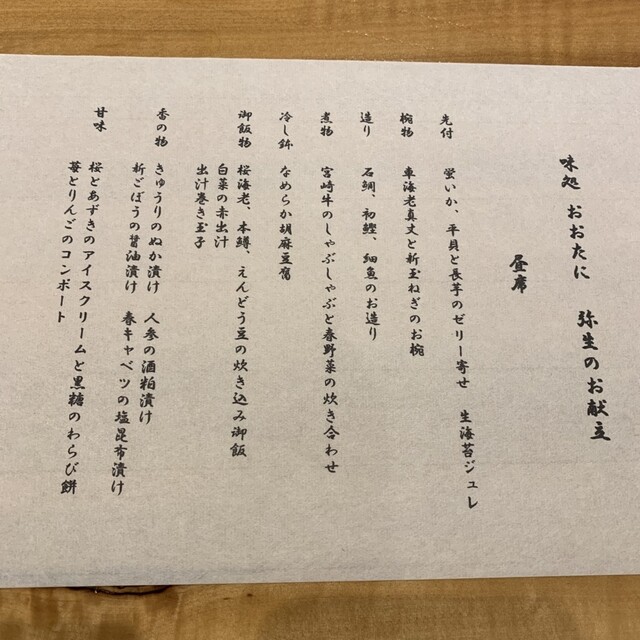 味処 おおたに 弥生のお献立
昼席
先付 蛍いか、平貝と長芋のゼリー寄せ 生海苔ジュレ
椀物 車海老真丈と新玉ねぎのお椀
造り 石鯛、初鰹、細魚のお造り
煮物 宮崎牛のしゃぶしゃぶと春野菜の炊き合わせ
冷し鉢 なめらか胡麻豆腐
御飯物 桜海老、本鱒、えんどう豆の炊き込み御飯
白菜の赤出汁
出汁巻き玉子
香の物 きゅうりのぬか漬け 人参の酒粕漬け
新ごぼうの醤油漬け 春キャベツの塩昆布漬け
甘味 桜とあずきのアイスクリームと黒糖のわらび餅
苺とりんごのコンポート